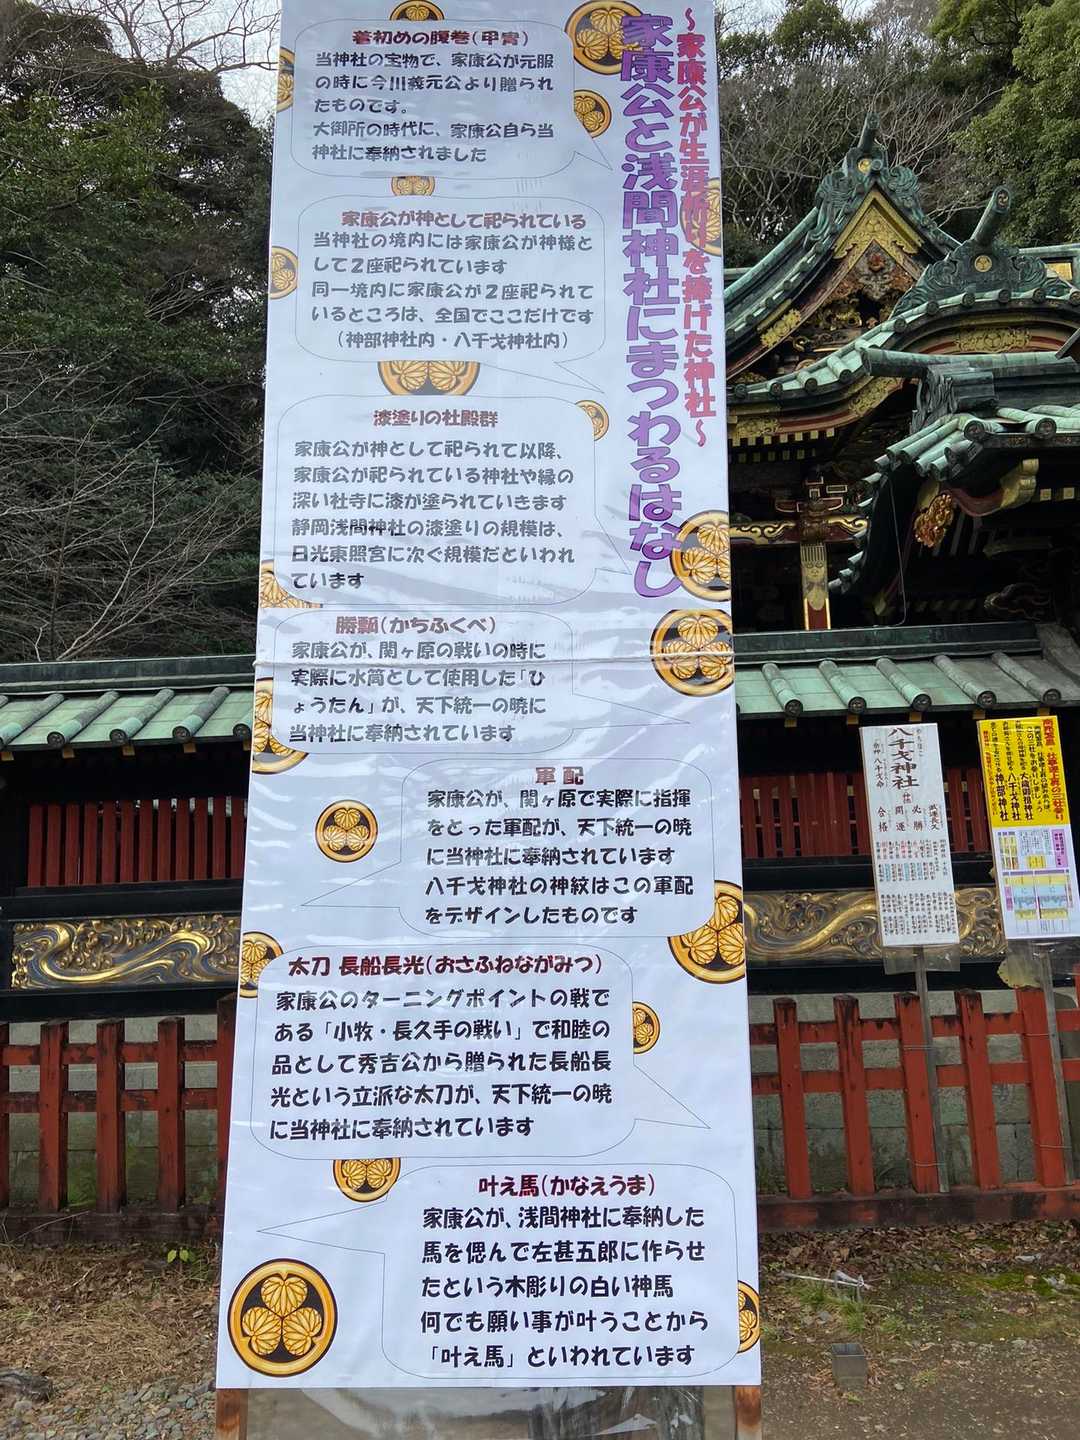 ～家康公が生涯祈りを捧げた神社～
家康公と浅間神社にまつわるはなし
着初めの腹巻(甲冑)
当神社の宝物で、家康公が元服
の時に今川義元公より贈られ
たものです。
大御所の時代に、家康公自ら当
神社に奉納されました
家康公が神として祀られている
当神社の境内には家康公が神様と
して２座祀られています
同一境内に家康公が２座祀られて
いるところは、全国でここだけです
（神部神社内・八千戈神社内）
漆塗りの社殿群
家康公が神として祀られて以降、
家康公が祀られている神社や縁の
深い社寺に漆が塗られていきます
静岡浅間神社の漆塗りの規模は、
日光東照宮に次ぐ規模だといわれ
ています
勝瓢(かちふくべ)
家康公が、関ヶ原の戦いの時に
実際に水筒として使用した「ひ
ょうたん」が、天下統一の暁に
当神社に奉納されています
軍配
家康公が、関ヶ原で実際に指揮
をとった軍配が、天下統一の暁
に当神社に奉納されています
八千戈神社の神紋はこの軍配
をデザインしたものです
太刀 長船長光(おさふねながみつ)
家康公のターニングポイントの戦で
ある「小牧・長久手の戦い」で和睦の
品として秀吉公から贈られた長船長
光という立派な太刀が、天下統一の暁
に当神社に奉納されています
叶え馬(かなえうま)
家康公が、浅間神社に奉納した
馬を偲んで左甚五郎に作らせ
たという木彫りの白い神馬
何でも願い事が叶うことから
「叶え馬」といわれています
八千戈神社
武運長久
必勝
開運
合格
大歳御祖神社
八千戈神社
神部神社